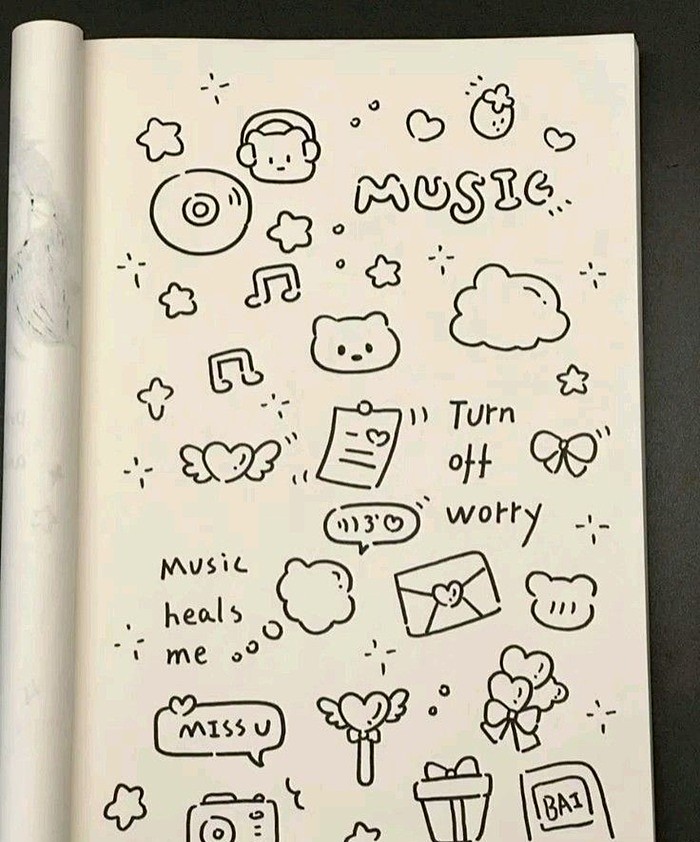 MUSIC
Turn
off
worry
Music
heals
me
MISS U
BAI